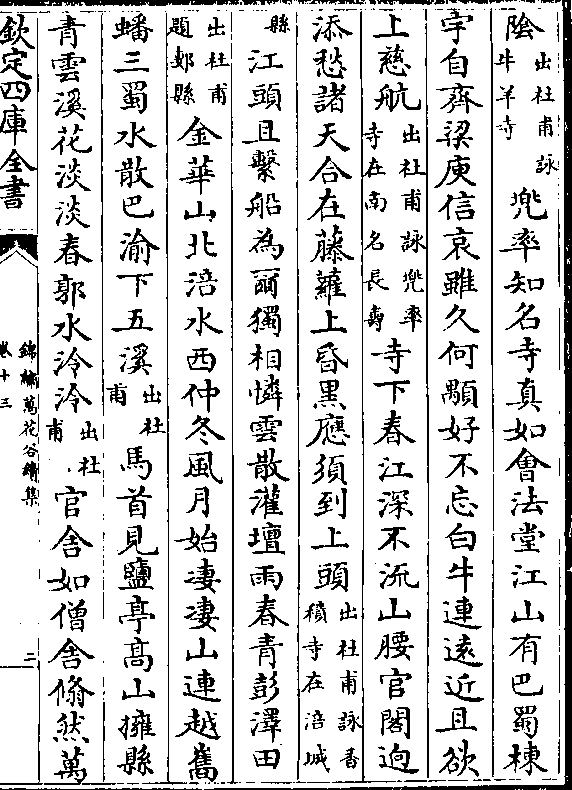 陰出杜甫詠牛羊寺兜率知名寺真如會法堂江山有巴蜀棟
宇自齊梁庾信哀雖久何顒好不忘白牛連遠近且欲
上慈航出杜甫詠兜率寺在南名長壽寺下春江深不流山腰官閣迥
添愁諸天合在藤蘿上昏黑應須到上頭出杜甫詠香積寺在涪城
縣江頭且繫船為爾獨相憐雲散灌壇雨春青彭澤田
出杜甫題郪縣金華山北涪水西仲冬風月始凄凄山連越嶲
蟠三蜀水散巴渝下五溪出杜甫馬首見鹽亭高山擁縣
青雲溪花淡淡春郭水泠泠出杜甫官舍如僧舍翛然萬
欽定四庫全書
錦繡萬花谷續集
卷十三